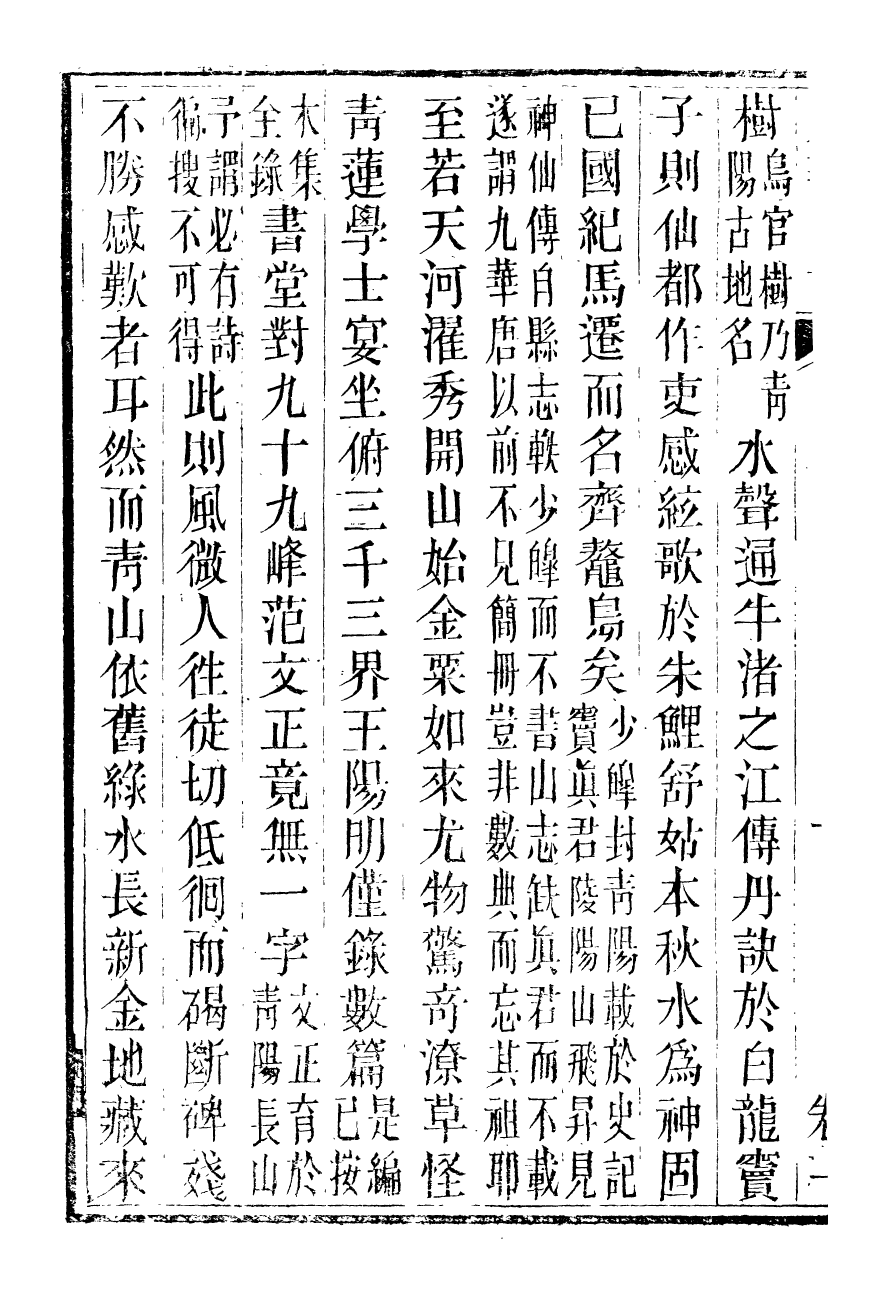 樹烏官樹乃青陽古地名水聲通牛渚之江傳丹訣於白龍竇
子則仙都作吏感絃歌於朱鯉舒姑本秋水爲神固
已國紀馬遷而名齊鼇島矣少皥封青陽載於史記竇眞君陵陽山飛昇見
神仙傳自縣志軼少皥而不書山志缺眞君而不載遂謂九華唐以前不見簡冊豈非數典而忘其祖耶
至若天河濯秀開山始金粟如來尤物驚奇潦草怪
青蓮學士宴坐俯三千三界王陽明僅錄數篇是編已按
本集全錄書堂對九十九峰范文正竟無一字文正育於青陽長山
予謂必有詩徧搜不可得此則風微人往徒切低徊而碣斷碑殘
不勝感歎者耳然而青山依舊綠水長新金地藏來